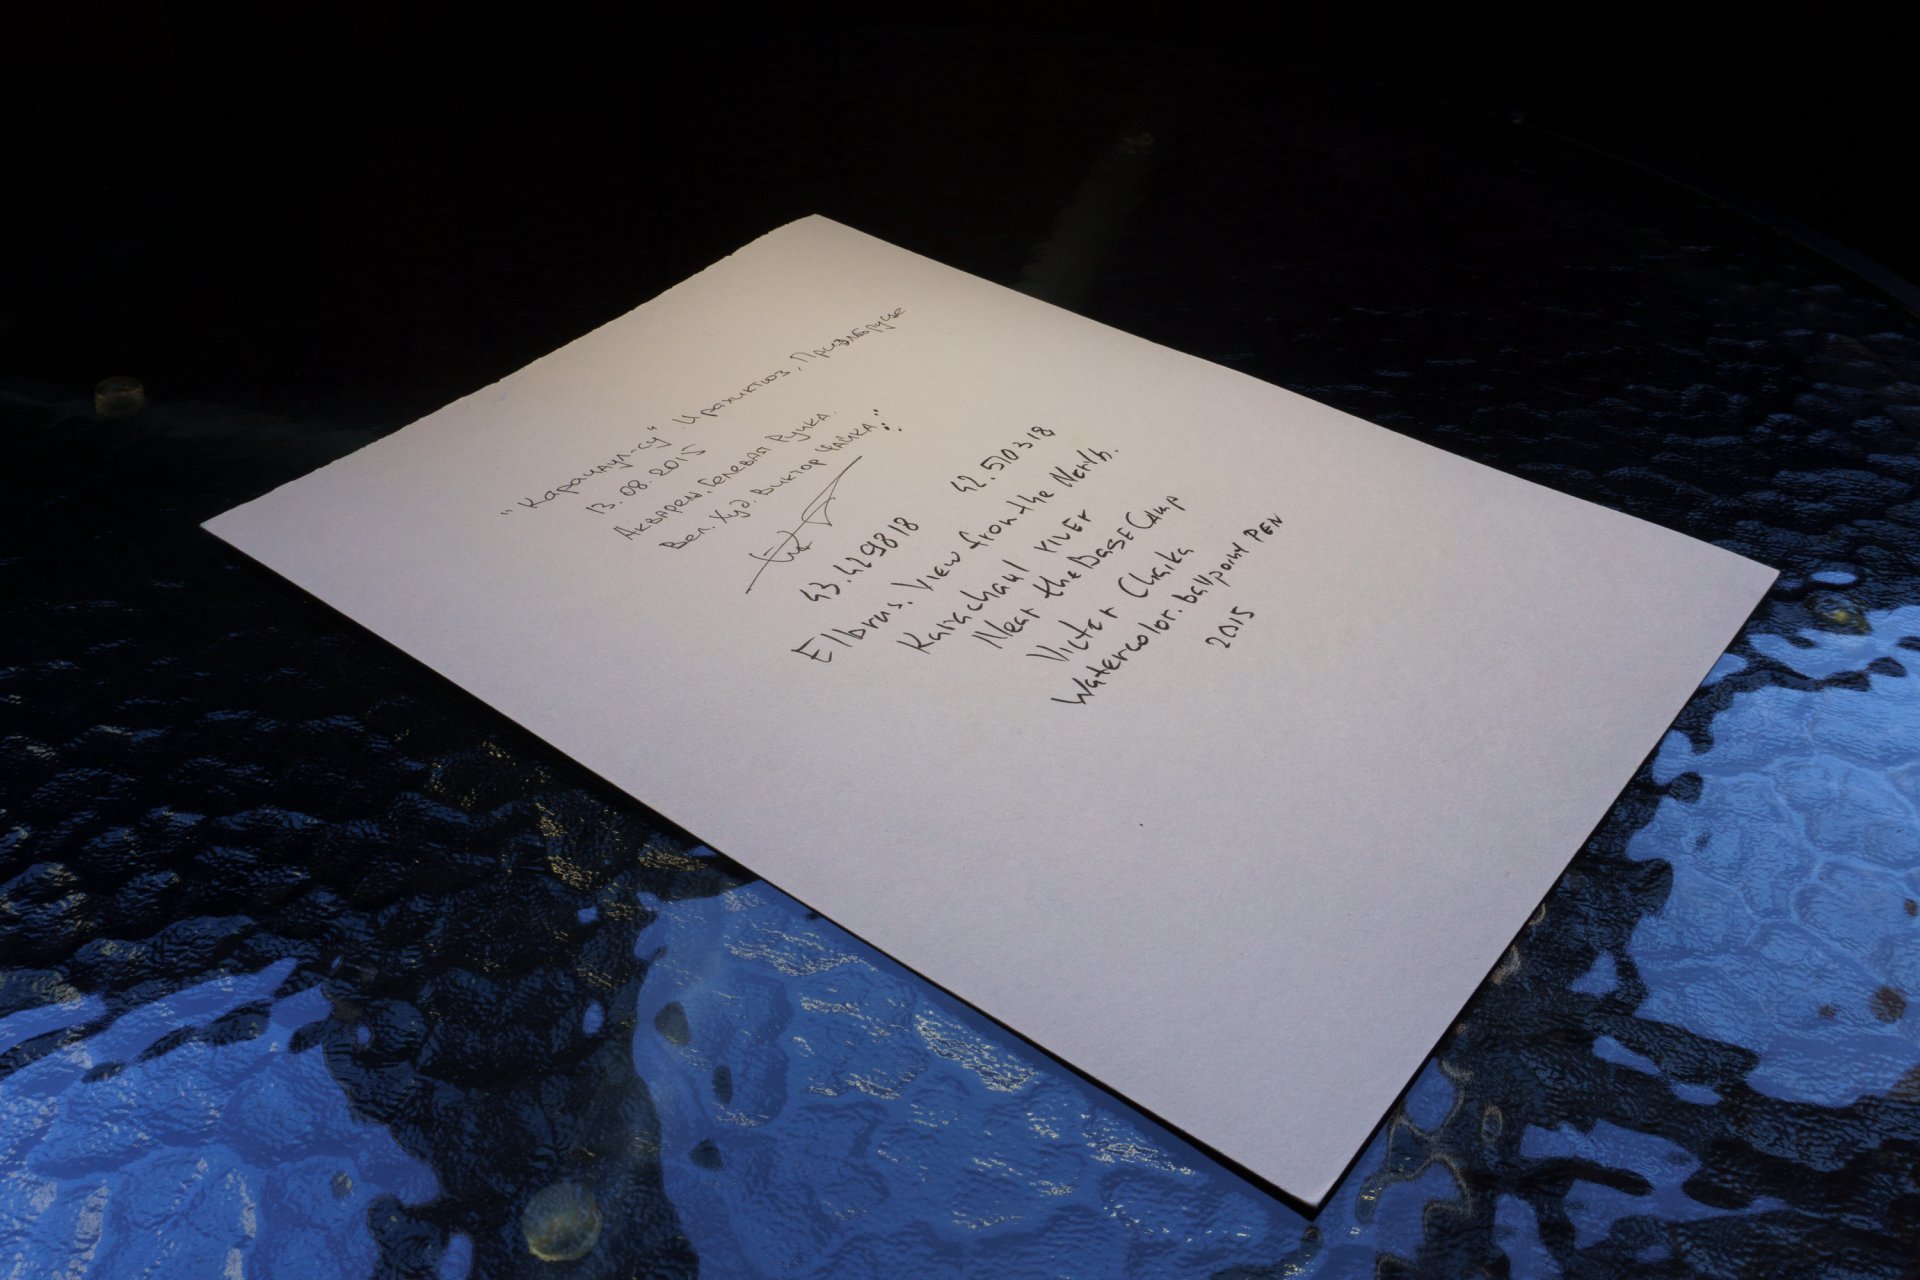 "Карачаул-су". Ирахиктюз, Приэльбрусье
13.08.2015
Акварель, Гелевая Ручка.
Вел. Худ. Виктор Чайка
43.429818 42.510318
Elbrus. View from the North.
Karachaul river
Near the Base Camp
Victor Chaika
Watercolor. ballpoint PEN
2015